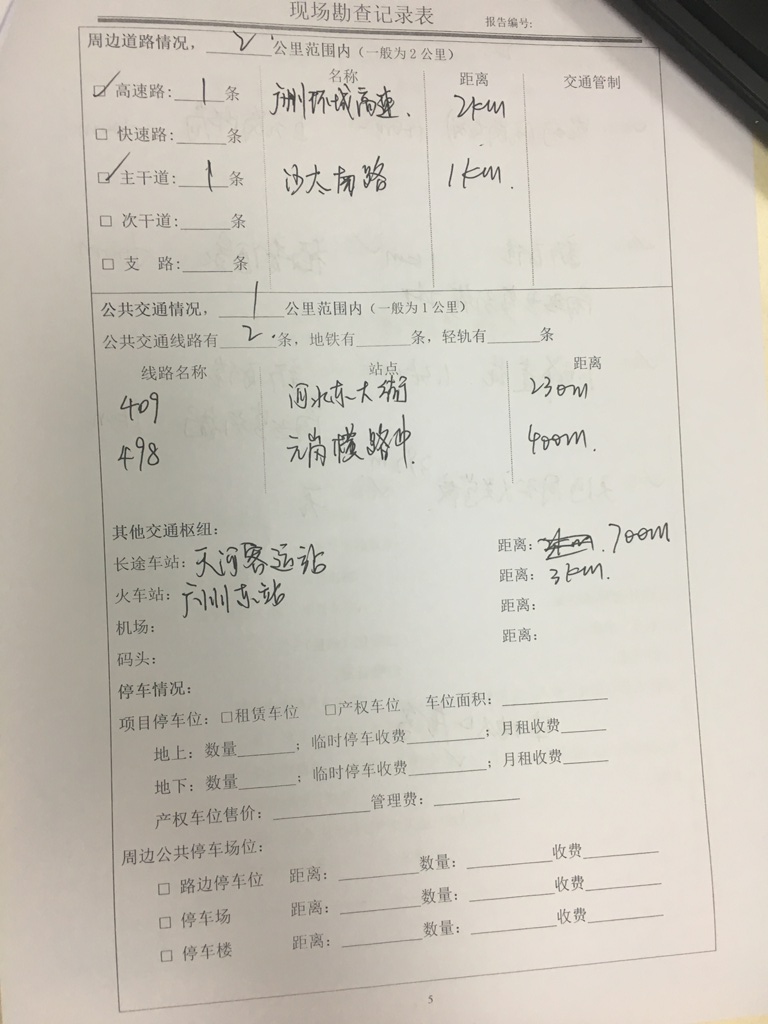 现场勘查记录表 报告编号:
周边道路情况，2公里范围内（一般为2公里）
名称 距离 交通管制
☑ 高速路:1条 广州环城高速. 2km
□ 快速路:____条
☑ 主干道:1条 沙太南路 1km.
□ 次干道:____条
□ 支 路:____条
公共交通情况，1公里范围内（一般为1公里）
公共交通线路有2条，地铁有____条，轻轨有____条
线路名称 站点 距离
409 河水东大街 230m
498 元岗横路中. 400m.
其他交通枢纽:
长途车站: 天河客运站 距离: 700m
火车站: 广州东站 距离: 3km.
机场: 距离:
码头: 距离:
停车情况:
项目停车位: □租赁车位 □产权车位 车位面积:________
地上: 数量____; 临时停车收费____; 月租收费____
地下: 数量____; 临时停车收费____; 月租收费____
产权车位售价:________管理费:________
周边公共停车场位:
□ 路边停车位 距离:________数量:________收费________
□ 停车场 距离:________数量:________收费________
□ 停车楼 距离:________数量:________收费________
5